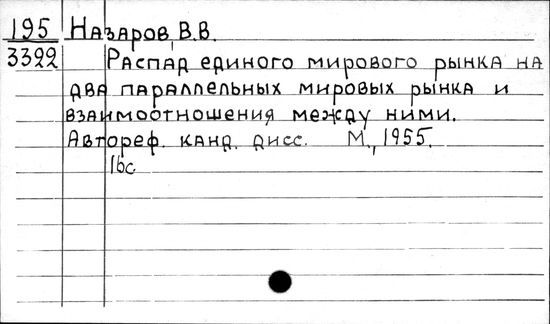 195 Назаров, В.В.
3322 Распад единого мирового рынка на
два параллельных мировых рынка и
взаимоотношения между ними.
Автореф. канд. дисс. М., 1955.
16с